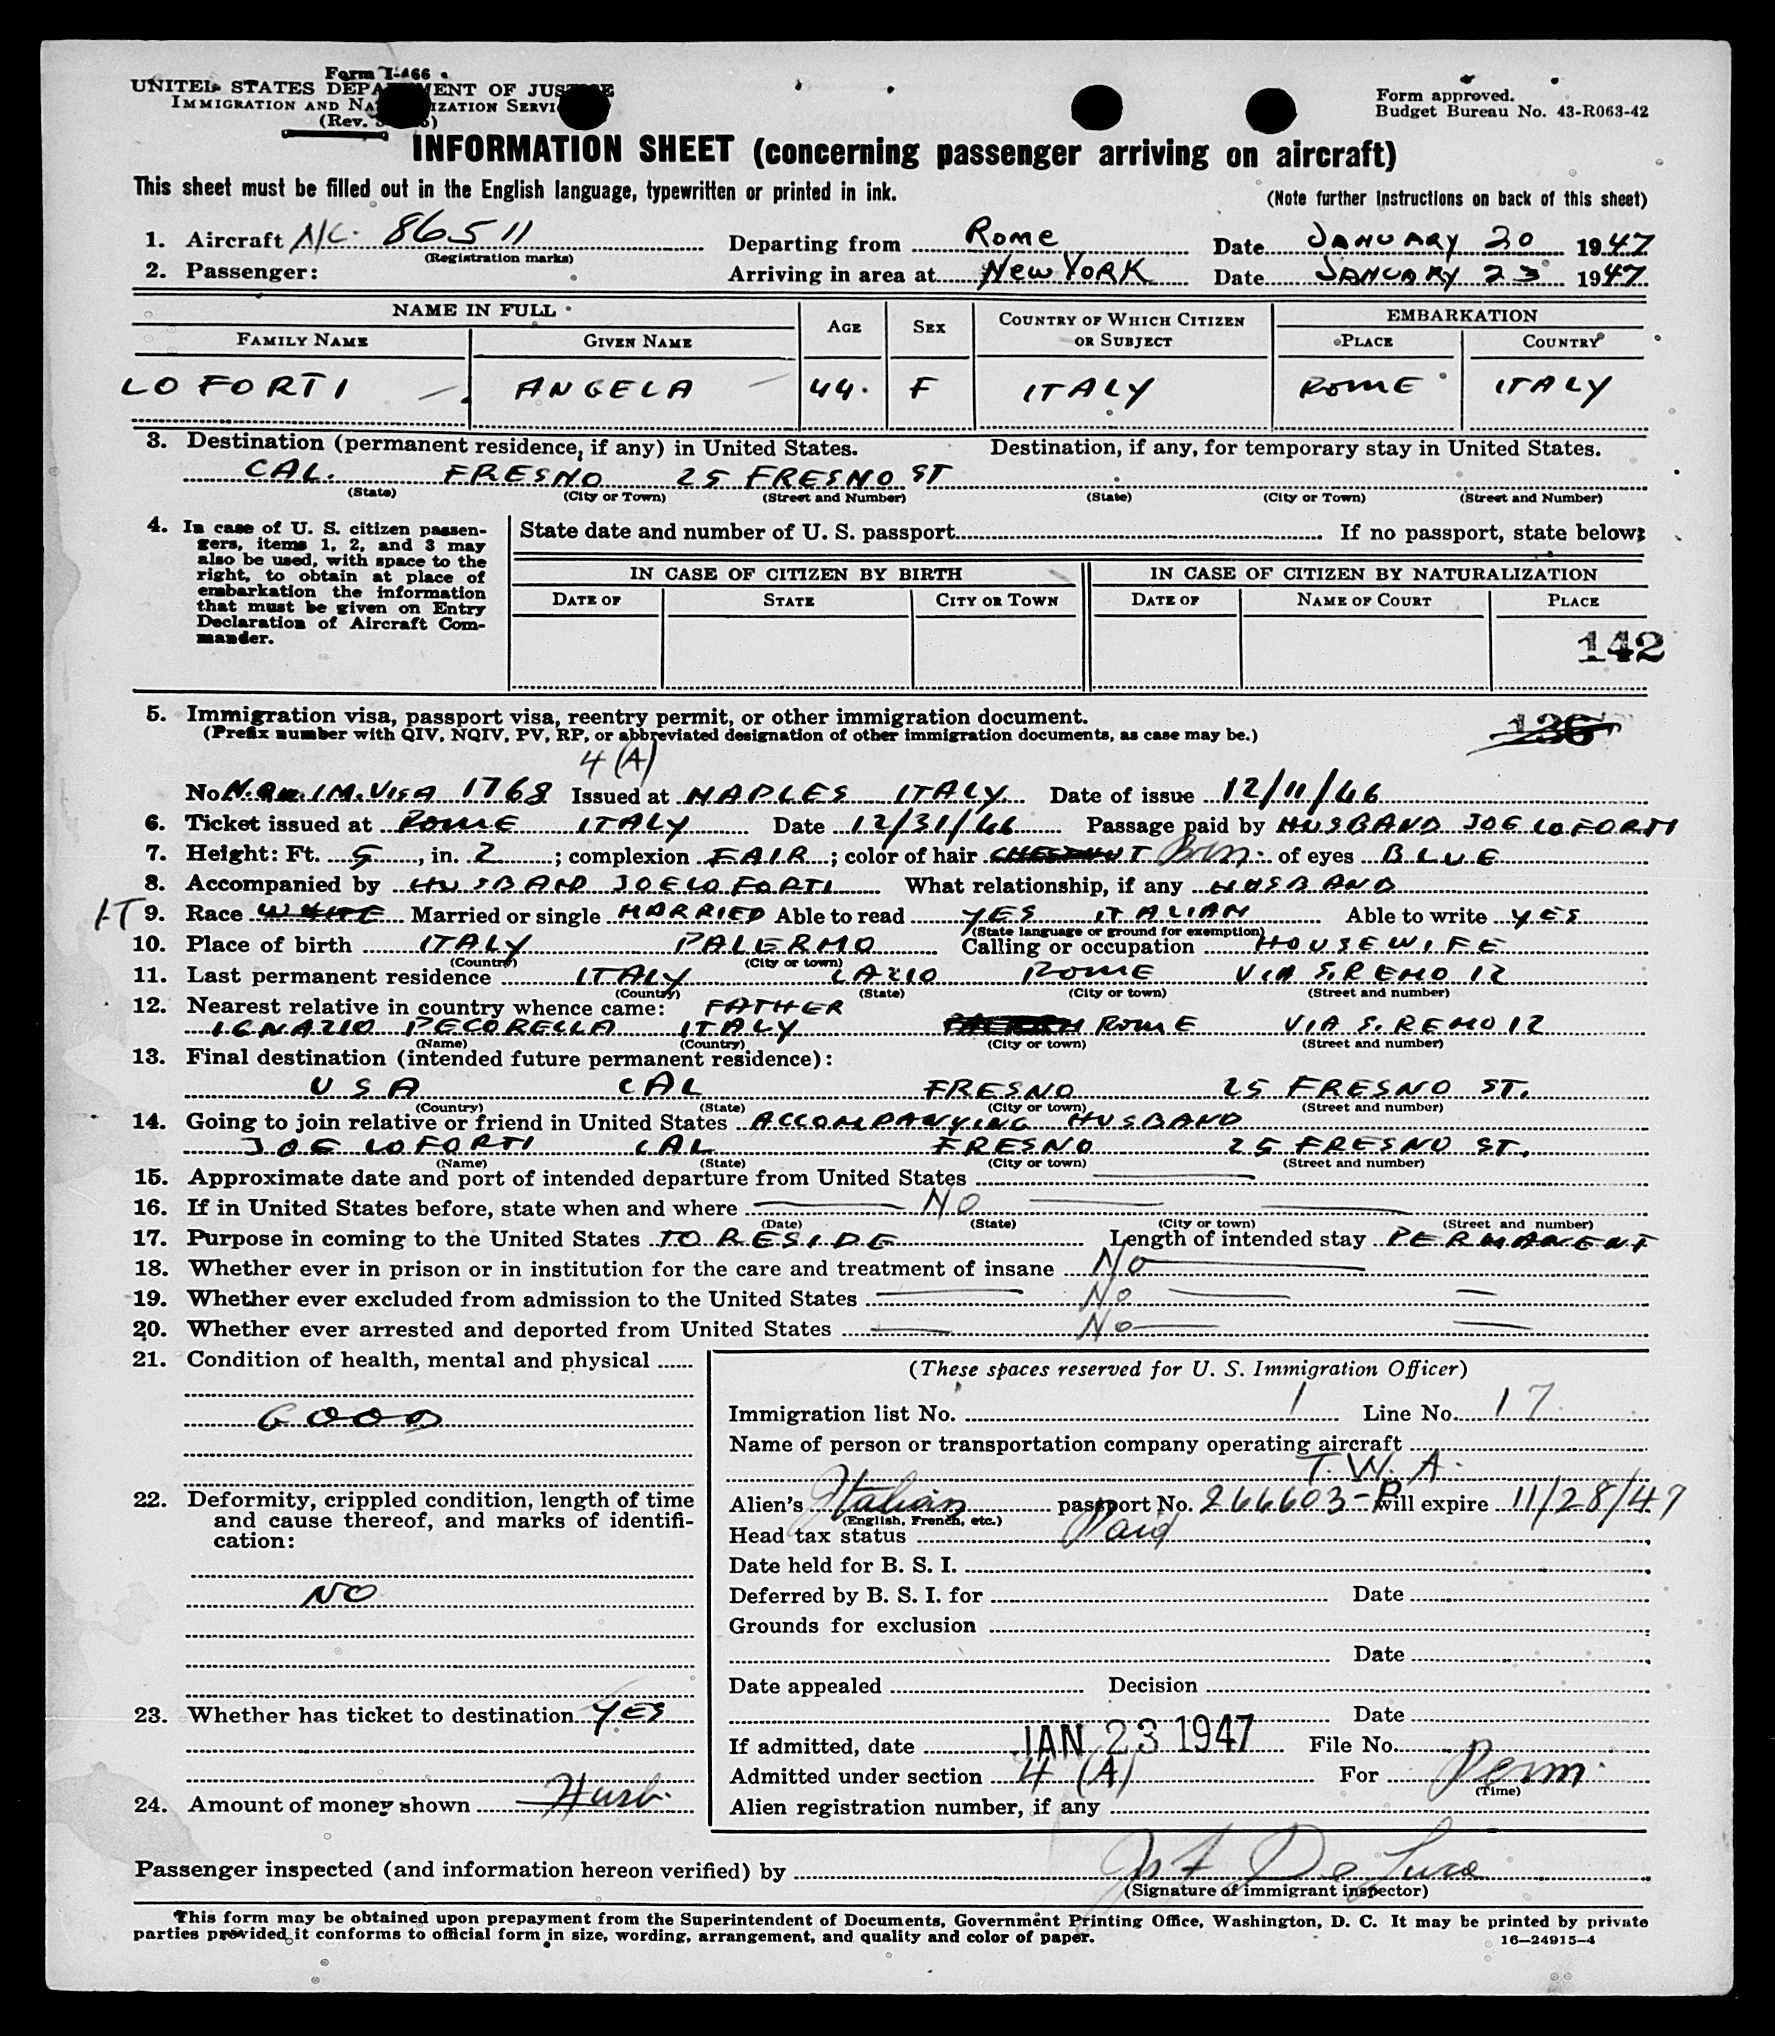 Form I-466
UNITED STATES DEPARTMENT OF JUSTICE
IMMIGRATION AND NATURALIZATION SERVICE
(Rev.
Form approved.
Budget Bureau No. 43-R063-42
INFORMATION SHEET (concerning passenger arriving on aircraft)
This sheet must be filled out in the English language, typewritten or printed in ink. (Note further instructions on back of this sheet)
1. Aircraft N/C. 86511 Departing from Rome Date JANUARY 20 1947
(Registration marks)
2. Passenger: Arriving in area at New YORK Date JANUARY 23 1947
NAME IN FULL AGE SEX COUNTRY OF WHICH CITIZEN OR SUBJECT EMBARKATION
FAMILY NAME GIVEN NAME PLACE COUNTRY
LO FORTI ANGELA 44. F ITALY ROME ITALY
3. Destination (permanent residence, if any) in United States. Destination, if any, for temporary stay in United States.
CAL. FRESNO 25 FRESNO ST
(State) (City or Town) (Street and Number) (State) (City or Town) (Street and Number)
4. In case of U. S. citizen passengers, items 1, 2, and 3 may also be used, with space to the right, to obtain at place of embarkation the information that must be given on Entry Declaration of Aircraft Commander.
State date and number of U. S. passport If no passport, state below:
IN CASE OF CITIZEN BY BIRTH IN CASE OF CITIZEN BY NATURALIZATION
DATE OF STATE CITY OR TOWN DATE OF NAME OF COURT PLACE
142
5. Immigration visa, passport visa, reentry permit, or other immigration document.
(Prefix number with QIV, NQIV, PV, RP, or abbreviated designation of other immigration documents, as case may be.)
136
4 (A)
No N.Qu.IM.VISA 1768 Issued at NAPLES ITALY Date of issue 12/11/46
6. Ticket issued at ROME ITALY Date 12/31/46 Passage paid by HUSBAND JOE LO FORTI
7. Height: Ft. 5, in. 2; complexion FAIR; color of hair CHESTNUT Brn. of eyes BLUE
8. Accompanied by HUSBAND JOE LO FORTI What relationship, if any HUSBAND
IT 9. Race WHITE Married or single MARRIED Able to read YES ITALIAN Able to write YES
(State language or ground for exemption)
10. Place of birth ITALY PALERMO Calling or occupation HOUSEWIFE
(Country) (City or town)
11. Last permanent residence ITALY LAZIO ROME VIA S. REMO 12
(Country) (State) (City or town) (Street and number)
12. Nearest relative in country whence came: FATHER
IGNAZIO PECORELLA ITALY ROME VIA S. REMO 12
(Name) (Country) (City or town) (Street and number)
13. Final destination (intended future permanent residence):
USA CAL FRESNO 25 FRESNO ST.
(Country) (State) (City or town) (Street and number)
14. Going to join relative or friend in United States ACCOMPANYING HUSBAND
JOE LO FORTI CAL FRESNO 25 FRESNO ST.
(Name) (State) (City or town) (Street and number)
15. Approximate date and port of intended departure from United States
16. If in United States before, state when and where No
(Date) (State) (City or town) (Street and number)
17. Purpose in coming to the United States TO RESIDE Length of intended stay PERMANENT
18. Whether ever in prison or in institution for the care and treatment of insane No
19. Whether ever excluded from admission to the United States No
20. Whether ever arrested and deported from United States No
21. Condition of health, mental and physical
GOOD
22. Deformity, crippled condition, length of time and cause thereof, and marks of identification:
NO
23. Whether has ticket to destination YES
24. Amount of money shown Husb.
(These spaces reserved for U. S. Immigration Officer)
Immigration list No. 1 Line No. 17
Name of person or transportation company operating aircraft
T. W. A.
Alien's Italian passport No. 266603-P will expire 11/28/47
(English, French, etc.)
Head tax status Paid
Date held for B. S. I.
Deferred by B. S. I. for Date
Grounds for exclusion
Date
Date appealed Decision
Date
If admitted, date JAN 23 1947 File No.
Admitted under section 4 (A) For Perm.
(Time)
Alien registration number, if any
Passenger inspected (and information hereon verified) by
(Signature of immigrant inspector)
This form may be obtained upon prepayment from the Superintendent of Documents, Government Printing Office, Washington, D. C. It may be printed by private
parties provided it conforms to official form in size, wording, arrangement, and quality and color of paper.
16—24915-4